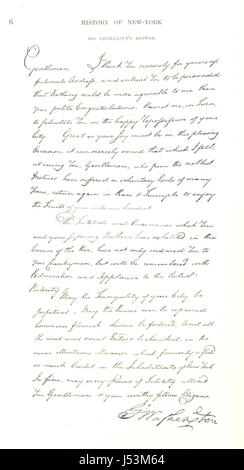 6 HISTORY OF NEW-YORK
HIS EXCELLENCY'S ANSWER.
Gentlemen I thank You sincerely for your affectionate
Address, and entreat You to be persuaded
that Nothing could be more agreeable to me than
your polite Congratulations. Permit me, in Turn,
to felicitate You on the happy Repossession of your
City.
Great as your Joy must be on this pleasing
Occasion, it can scarcely exceed that which I feel,
at seeing You, Gentlemen, who from the noblest
Motives have suffered a voluntary Exile of many
Years, return again in Peace & Triumph to enjoy
the Fruits of your virtuous Conduct
The Fortitude and Perseverance which You
and your suffering Brethren have exhibited in the
Course of the War, have not only endeared You to
your Countrymen, but will be remembered with
Admiration and Applause to the latest
Posterity
May the Tranquility of your City be
perpetual. May the Ruins soon be repaired
Commerce flourish Science be fostered, and all
the civil and social Virtues be cherished, in the
same illustrious Manner which formerly reflected
so much Credit on the Inhabitants of New York
In fine, may every Species of Felicity attend
You Gentlemen & your worthy fellow Citizens
G Washington
alamy
Image ID: J53M64
www.alamy.com